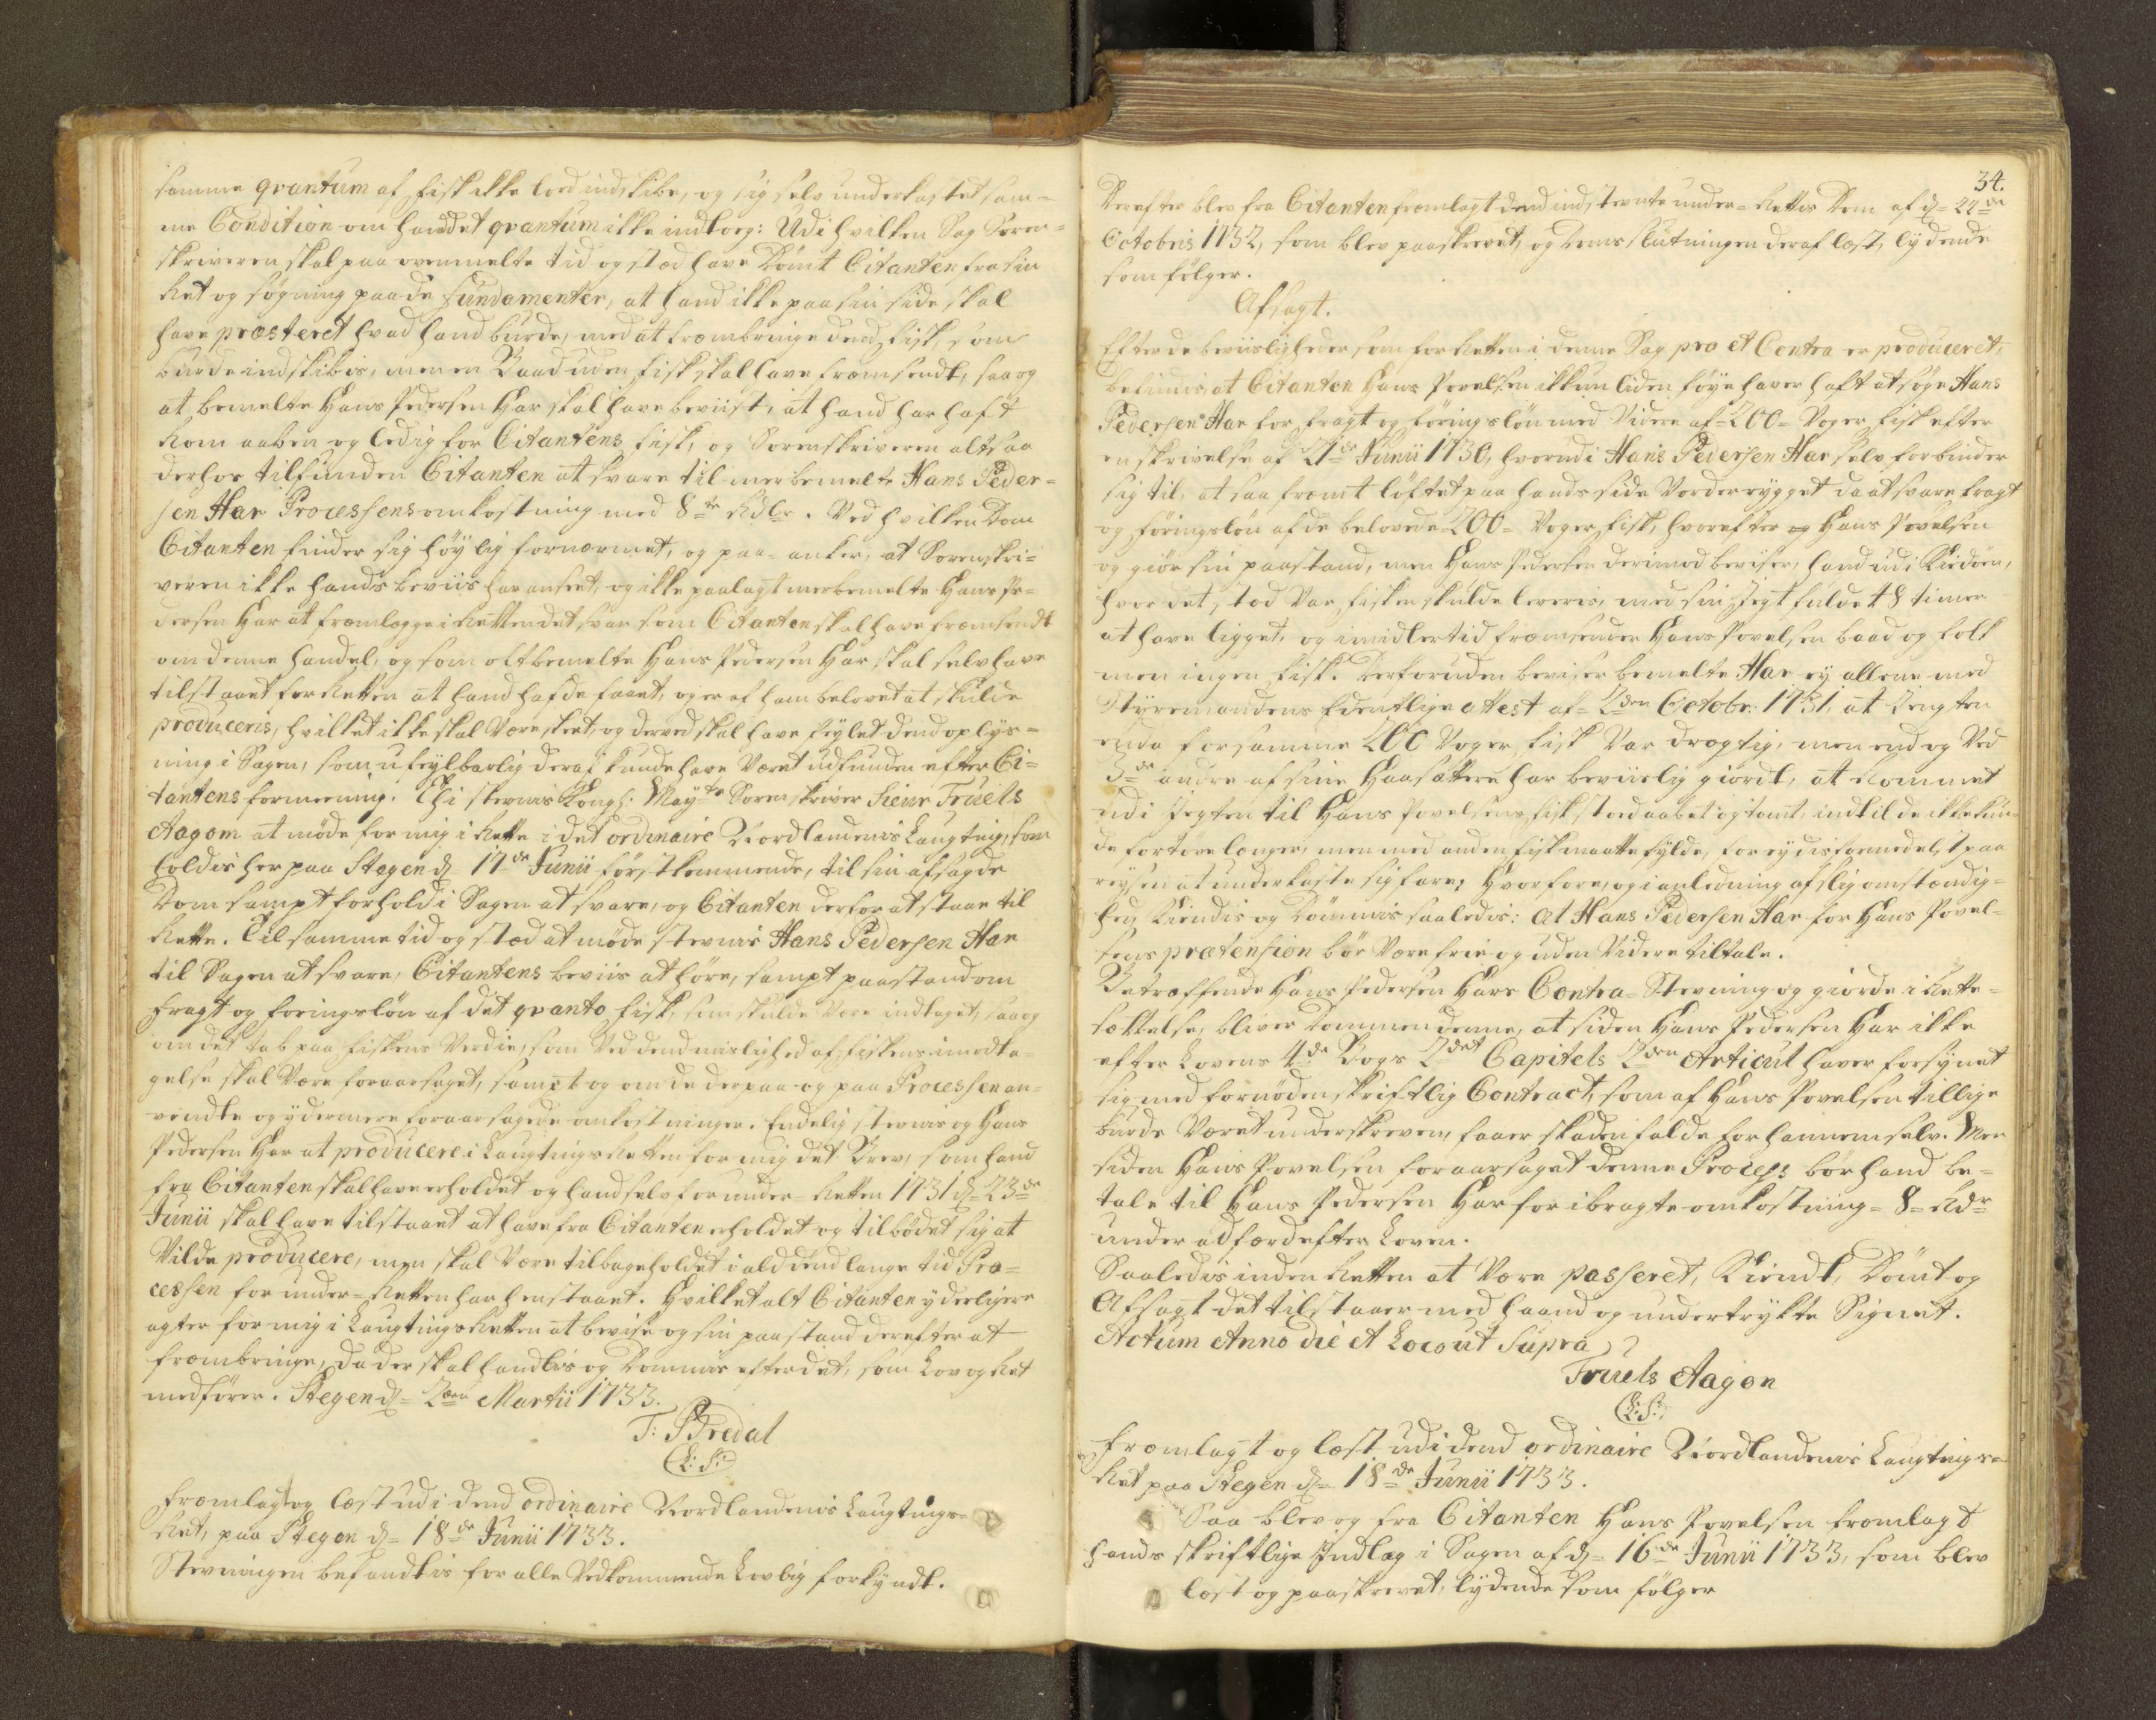 samme qvantum af fisk ikke lod indskibe, og sig selv underkastet sam=
me Condition om hand det qvantum ikke indtog: Udi hvilken Sag Soren=
skriveren skal paa ovenmelte tid og stæd have Dømt Citanten fra sin
Ret og søgning paa de fundamenter, at hand ikke paa sin side skal
have præsteret hvad hand burde, med at frembringe dend fisk, som
burde indskibis, men en Baad uden fisk skal have fremsendt, saa og
at bemelte Hans Pedersen Har skal have beviist, at hand har haft
Rom aaben og ledig for Citantens fisk, og Sorenskriveren altsaa
derhos tilfunden Citanten at svare til merbemelte Hans Peder=
sen Har Processens omkostning med 8te Rdlr. Ved hvilken Dom
Citanten finder sig høylig fornærmet, og paa=anker, at Sorenskri=
veren ikke hands beviis har anseet, og ikke paalagt merbemelte Hans Pe=
dersen Har at fremlegge i Retten det svar som Citanten skal have fremsendt
om denne handel, og som oftbemelte Hans Pedersen Har skal selv have
tilstaaet for Retten at hand hafde faaet, og er af ham belovet at skulde
produceris, hvilket ikke skal Være skeet, og derved skal have feylet dend oplys=
ning i Sagen, som ufeylbarlig deraf kunde have Været udfunden efter Ci=
tantens formeening. Thi stevnis Kongl: May:ts Sorenskriver Sieur Truels
Aagon at møde for mig i Rette i det ordinaire Nordlandenis Laugting, som
holdis her paa Stegen d. 17de Junii førstkommende, til sin afsagde
Dom sampt forhold i Sagen at svare, og Citanten derfor at staae til
Rette. Til samme tid og stæd at møde stevnis Hans Pedersen Har
til Sagen at svare, Citantens beviis at høre, sampt paastand om
fragt og foringsløn af det qvanto fisk, som skulde Vore indtaget, saa og
om det tab paa fiskens Verdie, som Ved dend mislighed af fiskens imodta=
gelse skal Være foraarsaget, samt og om de derpaa og paa Processen an=
vendte og ydermere foraarsagede omkostninger. Endelig stevnis og Hans
Pedersen Har at producere i Laugtings Retten for mig det Brev, som hand
fra Citanten skal have erholdet og hand selv for under=Retten 1731 d. 23de
Junii skal have tilstaaet at have fra Citanten erholdet og tilbødet sig at
Vilde producere, men skal Være tilbageholdet i ald dend lange tid Pro=
cessen for under=Retten har henstaaet. Hvilket alt Citanten ydeligere
agter for mig i Laugtings Retten at bevise og sin paastand derefter at
frembringe, da der skal handlis og Dømmis efter det, som Lov og Ret
medfører. Stegen d. 2den Martii 1733.
T: Bredal
(L: S:)
fremlagt og læst udi dend ordinaire Nordlandenis Laugtings=
Ret, paa Stegen d. 18de Junii 1733.
Stevningen befandtis for alle Vedkommende Lovlig forkyndt.
34.
Derefter blev fra Citanten fremlagt dend indstevnte under=Rettis Dom af d. 22de
Octobris 1732, som blev paaskrevet, og Doms slutningen deraf læst, lydende
som følger.
Afsagt.
Efter de beviisligheder som for Retten i denne Sag pro et Contra er produceret,
befindis, at Citanten Hans Povelsen ikkun liden føye haver haft at søge Hans
Pedersen Har for fragt og føringsløn med Videre af 200 Voger fisk efter
en skrivelse af 21de Junii 1730, hvorudi Hans Pedersen Har selv forbinder
sig til, at saa fremt løftet paa hands side Vorder rygget da at svare fragt
og føringsløn af de belovede 200 Voger fisk, hvorefter og Hans Povelsen
og giør sin paastand, men Hans Pedersen derimod beviser, hand udi Riidøen,
hvor det stod Var fisken skulde leveris, med sin Jegt fuldet 8 timer
at have ligget, og imidlertid fremsender Hans Povelsen baad og folk
men ingen fisk. Derforuden beviser bemelte Har ey allene med
Styremandens Edentlige Attest af 2den Octobr: 1731, at Jægten
enda for samme 200 Voger fisk Var drægtig, men end og Ved
3de andre af sine Haasættere har beviislig giordt, at Rommet
udi Jegten til Hans Povelsens fisk stoed aabet og tomt, indtil de ikke kun=
de fortøve længer, men med anden fisk maatte fylde, for ey disformedelst paa
reysen at underkaste sig fare; Hvorfore, og i anledning af slig omstændig=
hed, Kiendis og Dømmis saaledis: At Hans Pedersen Har for Hans Povel=
sens prætension bør Være frie og uden Videre tiltale.
Betræffende Hans Pedersen Hars Contra=Stevning og giorde i Rette=
sættelse, bliver Dommen denne, at siden Hans Pedersen Har ikke
efter Lovens 4de Bogs 2det Capitels 2den Articul haver forsynet
sig med fornøden skriftlig Contract, som af Hans Povelsen tillige
burde Været underskreven, faaer skaden falde for hannem selv. Men
siden Hans Povelsen foraarsaget denne Process bør hand be=
tale til Hans Pedersen Har foribragte omkostning 8 Rdr
under adfærd efter Loven.
Saaledis inden Retten at Være passeret, Kiendt, Dømt og
Afsagt det tilstaaer med haand og undertrykte Signet.
Actum Anno die et Loco ut Supra
Truels Aagon
(L: S:)
fremlagt og læst udi dend ordinaire Nordlandenis Laugtings=
Ret paa Stegen d. 18de Junii 1733.
Saa blev og fra Citanten Hans Povelsen fremlagt
hands skriftlige Indlæg i Sagen af d. 16de Junii 1733, som blev
læst og paaskrevet, lydende som følger